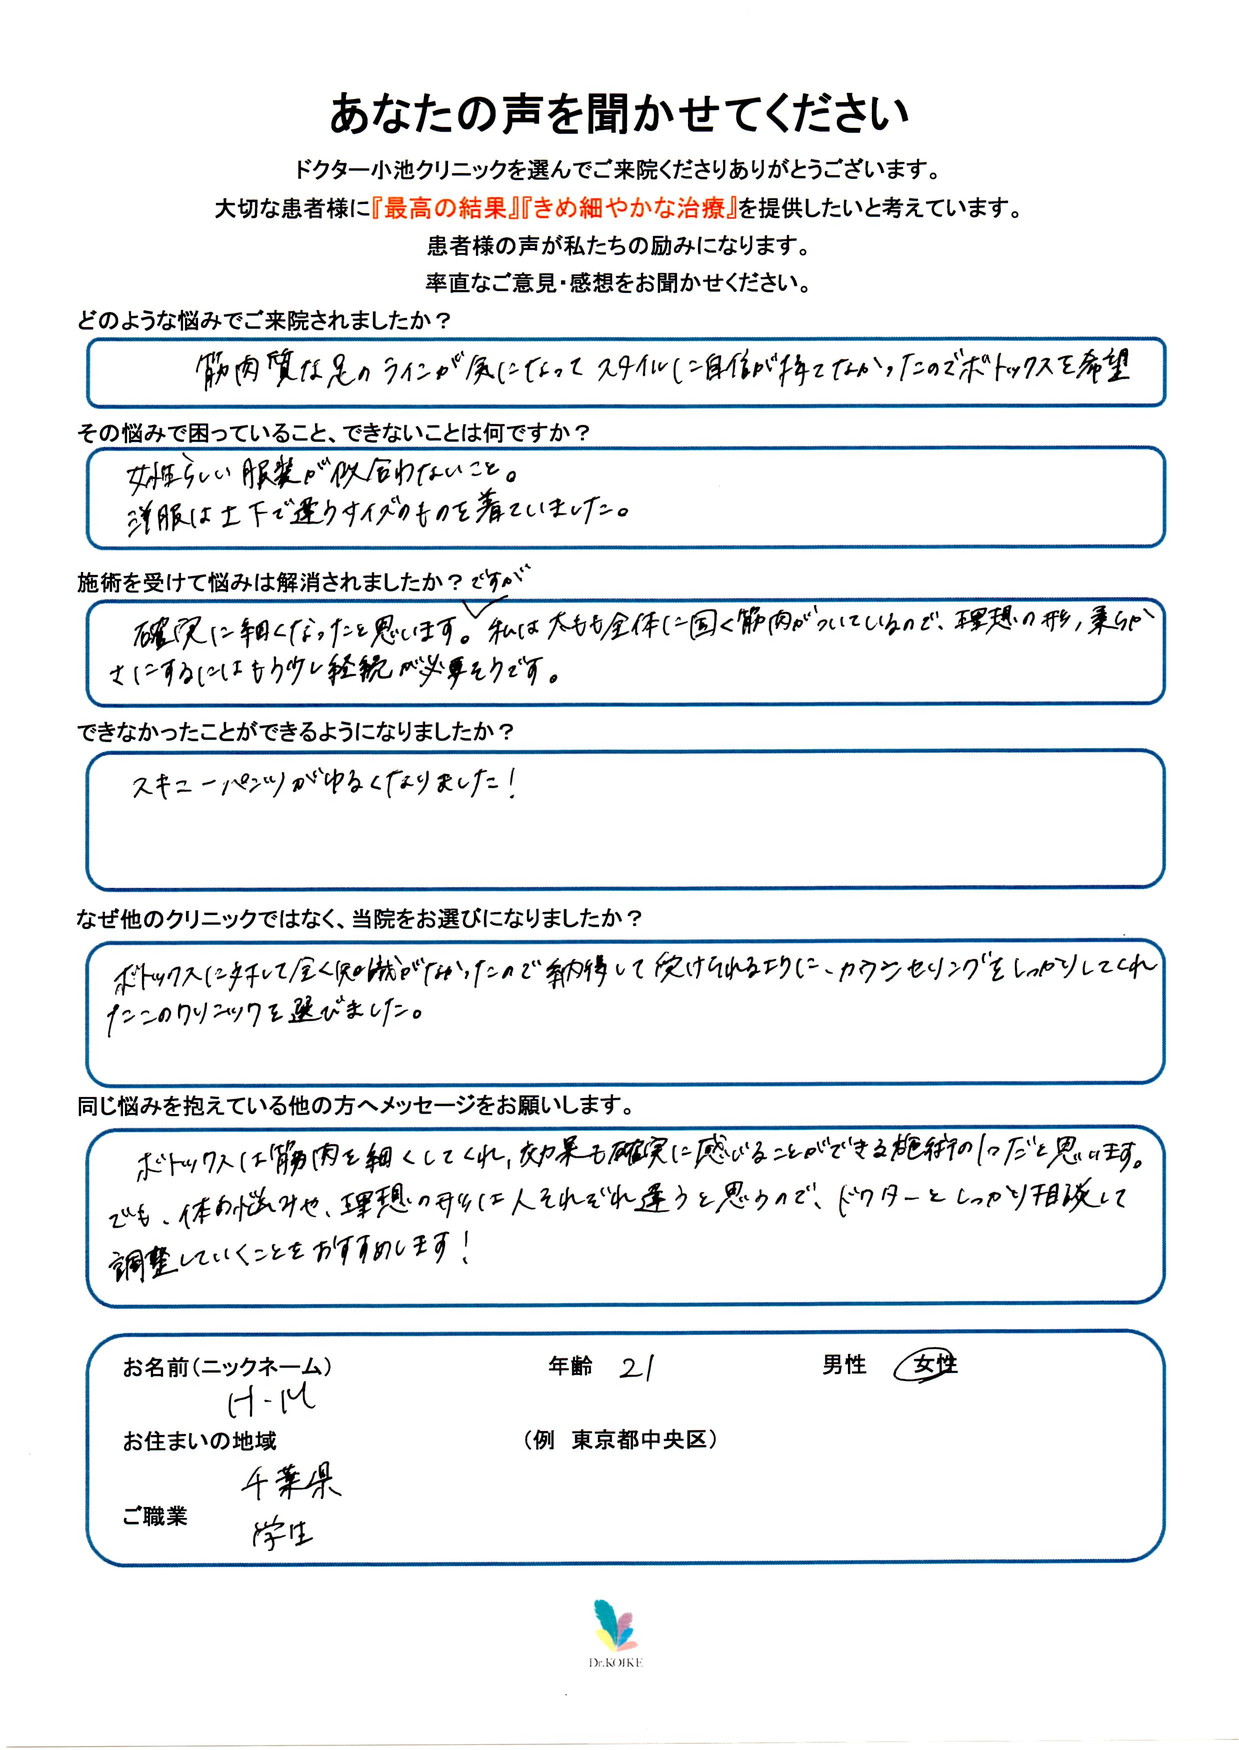 あなたの声を聞かせてください
ドクター小池クリニックを選んでご来院くださりありがとうございます。
大切な患者様に『最高の結果』『きめ細やかな治療』を提供したいと考えています。
患者様の声が私たちの励みになります。
率直なご意見・感想をお聞かせください。
どのような悩みでご来院されましたか？
筋肉質な足のラインが気になってスタイルに自信が持てなかったのでボトックスを希望
その悩みで困っていること、できないことは何ですか？
女性らしい服装が似合わないこと。
洋服は上下で違うサイズのものを着ていました。
施術を受けて悩みは解消されましたか？
ですが
確実に細くなったと思います。私は太もも全体に固く筋肉がついているので、理想の形,柔らか
さにするにはもう少し経続が必要そうです。
できなかったことができるようになりましたか？
スキニーパンツがゆるくなりました！
なぜ他のクリニックではなく、当院をお選びになりましたか？
ボトックスに対して全く知識がなかったので納得して受けられるように、カウンセリングをしっかりしてくれ
たこのクリニックを選びました。
同じ悩みを抱えている他の方へメッセージをお願いします。
ボトックスは筋肉を細くしてくれ,効果も確実に感じることができる施術の1つだと思います。
でも、体の悩みや、理想の形は人それぞれ違うと思うので、ドクターとしっかり相談して
調整していくことをおすすめします！
お名前（ニックネーム） 年齢 21 男性 女性
H-M
お住まいの地域 （例 東京都中央区）
千葉県
ご職業
学生
Dr.KOIKE